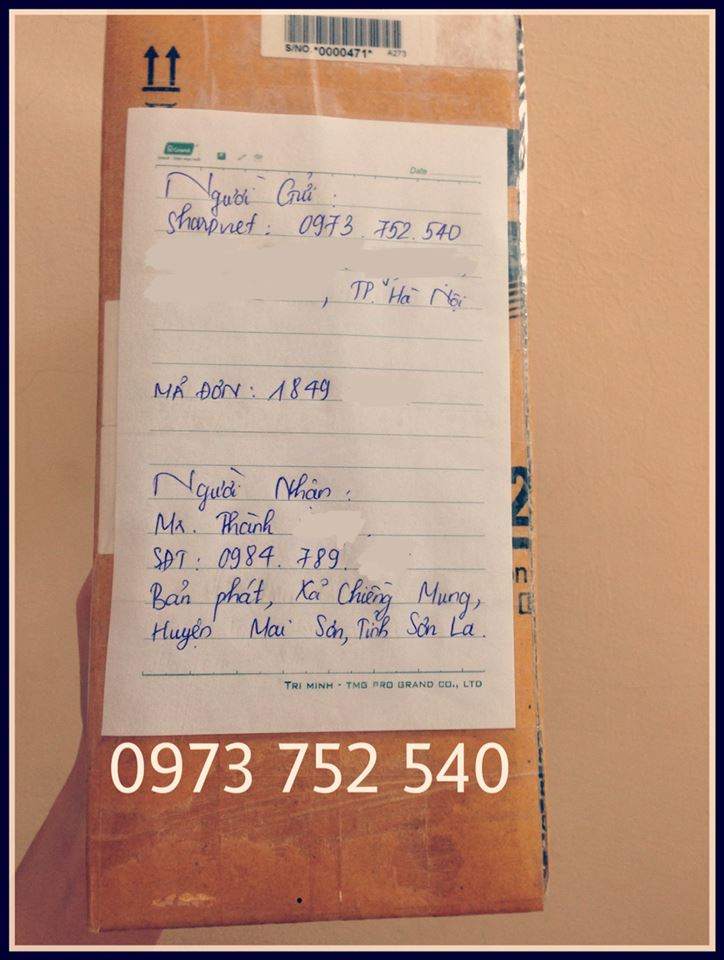 S/NO. *0000471* A273
Grand
Date
Người Gửi :
Sharpnet : 0973 . 752 . 540
, TP. Hà Nội
MÃ ĐƠN : 1849
Người Nhận :
Mr. Thành
SĐT : 0984 . 789 .
Bản phát, Xã Chiềng Mung,
Huyện Mai Sơn, Tỉnh Sơn La.
TRI MINH - TMG PRO GRAND CO., LTD
0973 752 540